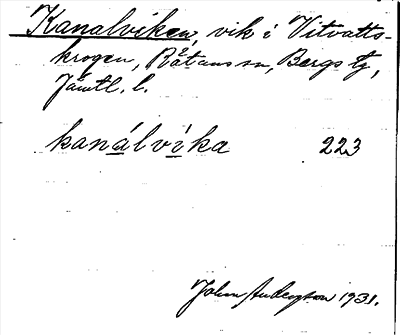 Kanalviken, vik i Vitvatts-
krogen, Rätans sn, Bergs tg,
Jämtl. l.
kanálvíka 223
John Andersson 1931.